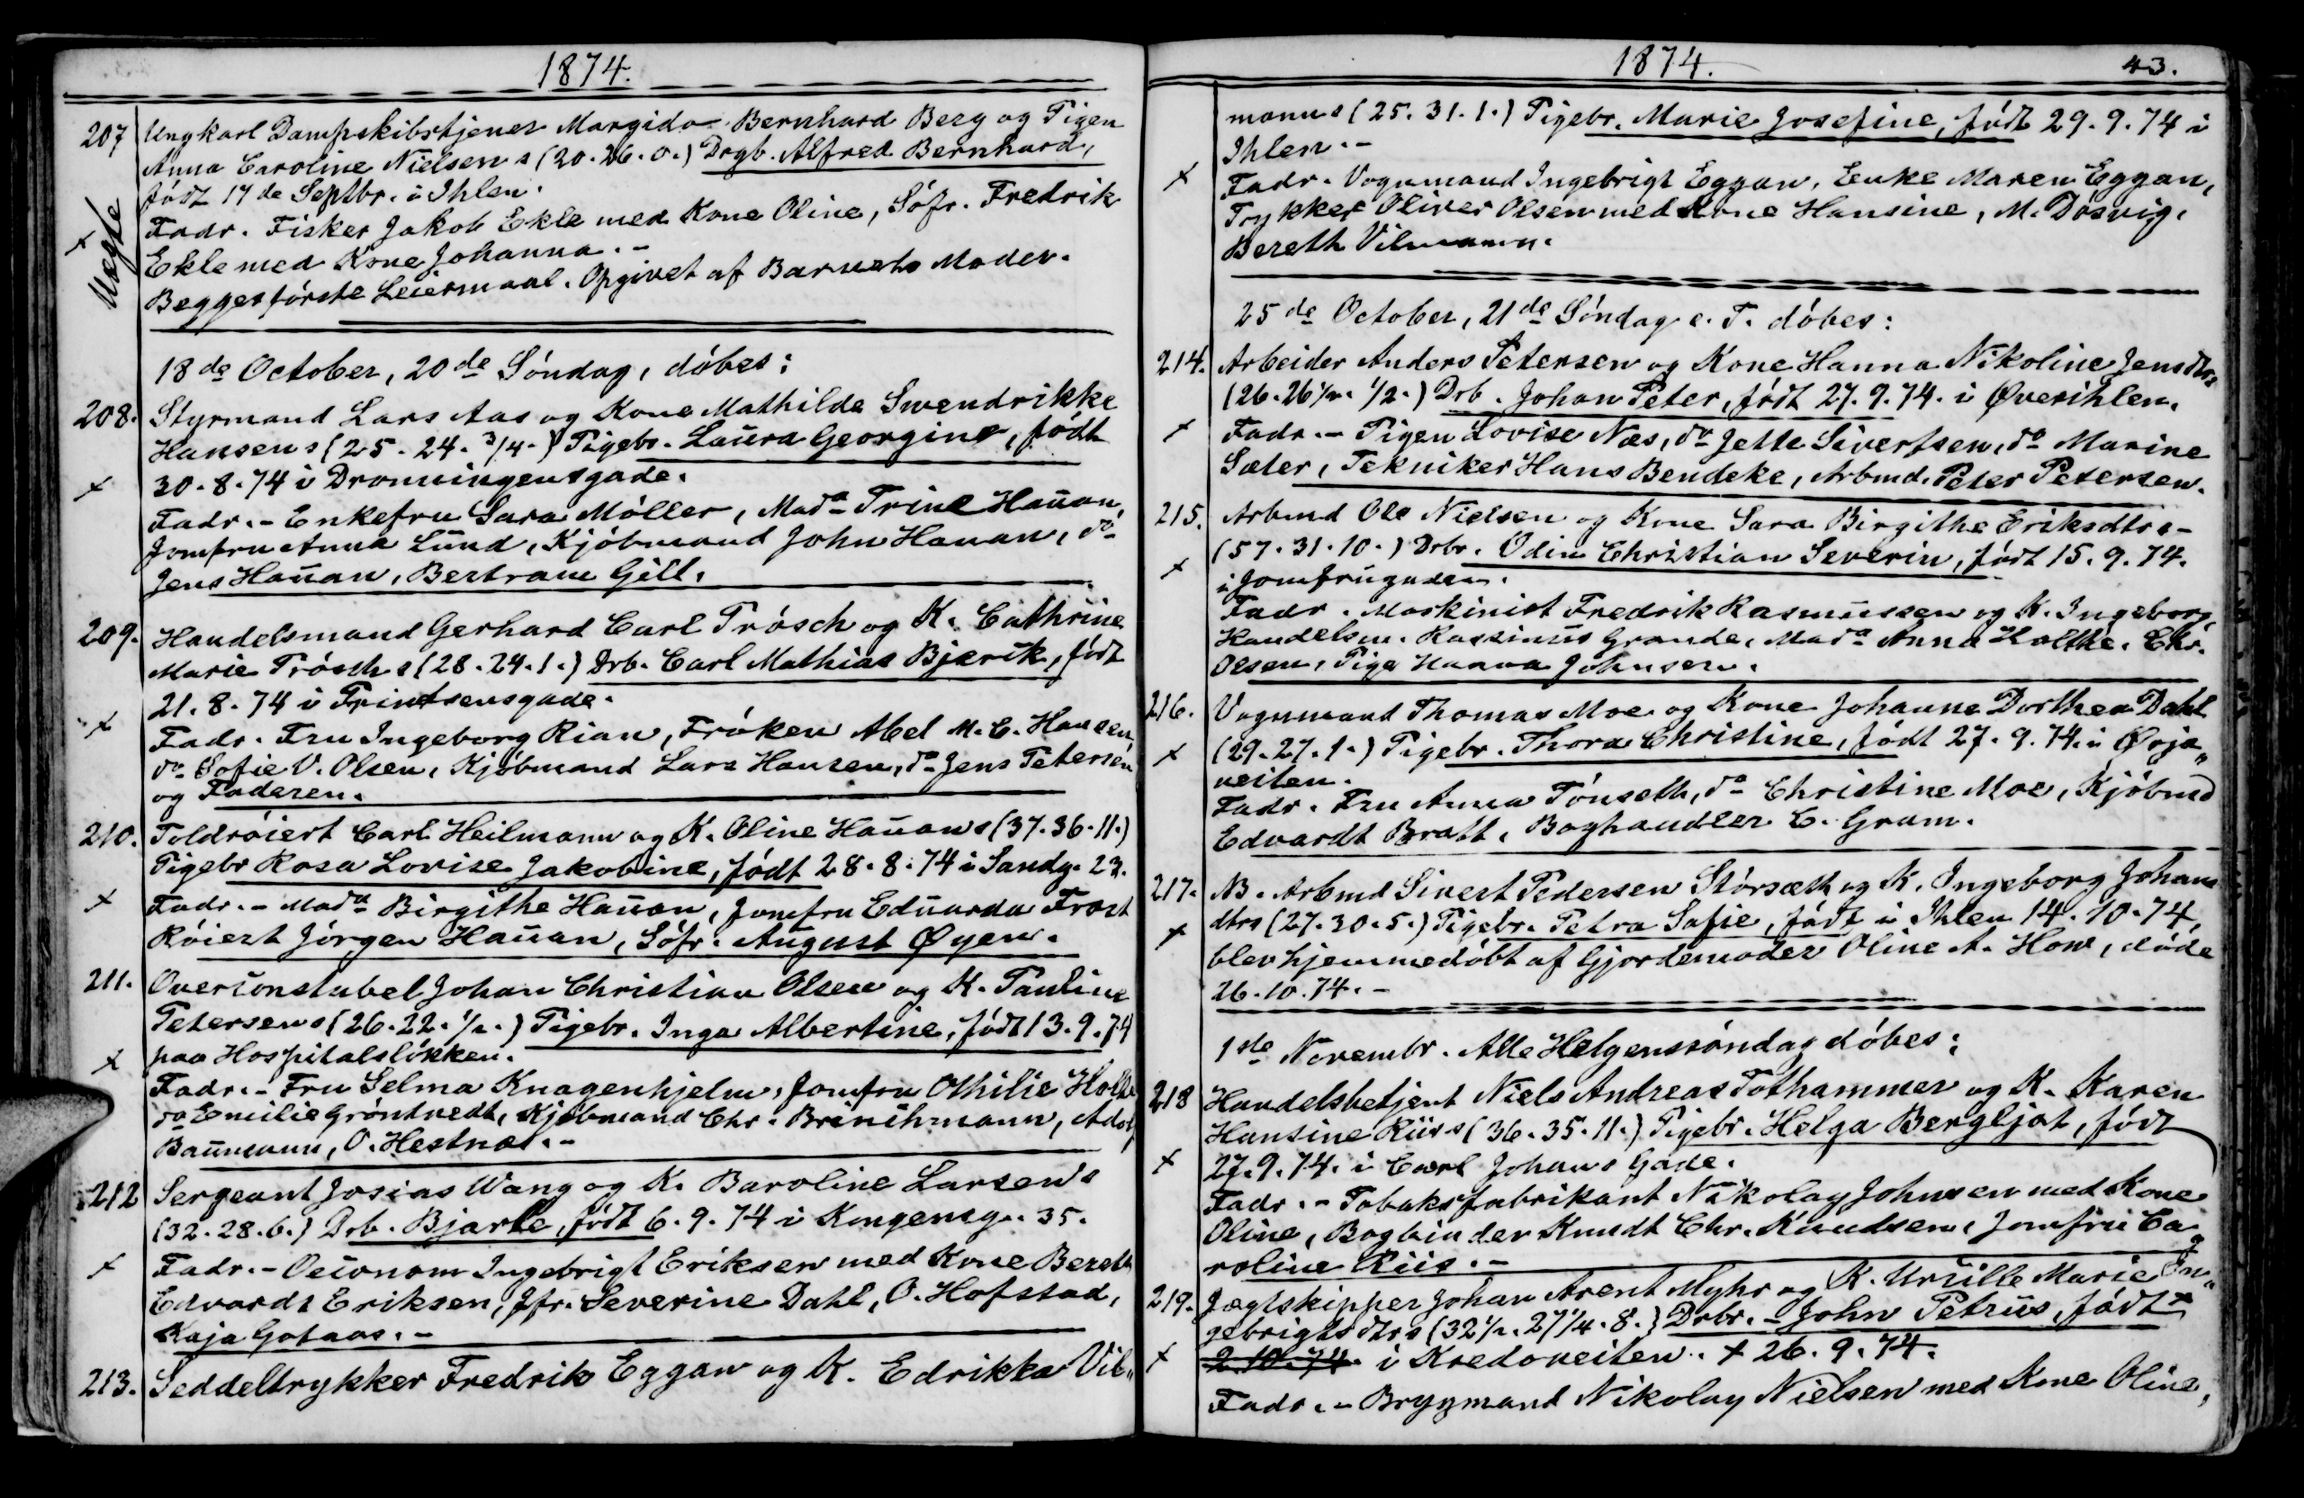 1874.
207 Ungkarl Dampskibstjener Margido Bernhard Berg og Pigen
Anna Caroline Nielsens (20. 26. 0.) Drgb. Alfred Bernhard,
født 17de Septbr. i Ihlen.
Uægte
× Fadr. Fisker Jakob Ekle med Kone Oline, Söfr. Fredrik
Ekle med Kone Johanna. -
Begges förste Leiermaal. Opgivet af Barnets Moder.
18de October, 20de Söndag, döbes:
208. Styrmand Lars Aas og Kone Mathilde Swendrikke
Hansens (25. 24. 3/4.) Pigebr. Laura Georgine, født
× 30. 8. 74 i Dronningensgade.
Fadr. - Enkefru Sara Möller, Mada Trine Hauan,
Jomfru Anna Lund, Kjöbmand John Hauan, do
Jens Hauan, Bertram Gill.
209. Handelsmand Gerhard Carl Trösch og K. Cathrine
Marie Trösch s (28. 24. 1.) Drb. Carl Mathias Bjerik, født
21. 8. 74 i Prindsensgade.
× Fadr. Fru Ingeborg Rian, Fröken Abel M. C. Hansen
do Sofie V. Olsen, Kjöbmand Lars Hansen, do Jens Petersen
og Faderen.
210. Toldröiert Carl Heilmann og K. Oline Hauans (37. 36. 11.)
Pigebr Rosa Lovise Jakobine, født 28. 8. 74 i Sandg. 23.
× Fadr. - Mada Birgithe Hauan, Jomfru Eduarda Frost
Röiert Jörgen Hauan, Söfr. August Øyen.
211. Overconstabel Johan Christian Olsen og K. Pauline
Petersens (26. 22. 1/2.) Pigebr. Inga Albertine, født 13. 9. 74
× paa Hospitalslökken.
Fadr. - Fru Selma Knagenhjelm, Jomfru Othilie Holte
do Emilie Gröntvedt, Kjöbmand Chr. Brinchmann, Adolf
Baumann, O. Hestnæs. -
212 Sergeant Josias Wang og K. Baroline Larsens
(32. 28. 6.) Drb. Bjarte, født 6. 9. 74 i Kongensg. 35.
× Fadr. - Oeconom Ingebrigt Eriksen med Kone Bereth
Edvardt Eriksen, Jfr. Severine Dahl, O. Hofstad,
Kaja Gofaas. -
213. Seddeltrykker Fredrik Eggan og K. Edrikka Vil„
1874. 43.
manns (25. 31. 1.) Pigebr. Marie Josefine, født 29. 9. 74 i
Ihlen. -
× Fadr. Vognmand Ingebrigt Eggan, Enke Maren Eggan,
Trykker Oliver Olsen med Kone Hansine, M. Dosvig,
Bereth Vilmann.
25de October, 21de Söndag e. T. döbes:
214. Arbeider Anders Petersen og Kone Hanna Nikoline Jensdtrs
(26. 26 1/2. 1/2.) Drb. Johan Peter, født 27. 9. 74. i Øverihlen.
× Fadr. - Pigen Lovise Næs, do Jette Sivertsen, do Marine
Sæter, Tekniker Hans Bendeke, Arbmd. Peter Petersen.
215. Arbmd Ole Nielsen og Kone Sara Birgithe Eriksdtrs -
(57. 31. 10.) Drbr. Odin Christian Severin, født 15. 9. 74.
× i Jomfrugaden.
Fadr. Maskinist Fredrik Rasmussen og K. Ingeborg,
Handelsm. Rasinus Grande, Mada Anna Holthe, Chr.
Olsen, Pige Hanna Johnsen.
216. Vognmand Thomas Moe og Kone Johanne Dorthea Dahl
× (29. 27. 1.) Pigebr. Thora Christine, født 27. 9. 74. i Örja„
veiten.
Fadr. Fru Anna Tönseth, do Christine Moe, Kjöbmd
Edvardt Bratt, Boghandler C. Gram.
217. NB. Arbmd Sivert Pedersen Störsæth og K. Ingeborg Johans
dtrs (27. 30. 5.) Pigebr. Petra Sofie, født i Ihlen 14. 10. 74,
× blev hjemmedöbt af Gjordemoder Oline A. How, döde
26. 10. 74. -
1ste Novembr. Alle Helgenssöndag döbes:
218 Handelsbetjent Niels Andreas Tothammer og K. Karen
Hansine Riis s (36. 35. 11.) Pigebr. Helga Bergljot, født
× 27. 9. 74. i Carl Johans Gade.
Fadr. - Tobaksfabrikant Nikolay Johnsen med Kone
Oline, Bogbinder Knudt Chr. Knudsen, Jomfru Ca„
roline Riis. -
219. Jægtskipper Johan Arent Myhr og K. Ursille Marie In„
gebrigtsdtrs (32 1/2. 27 1/4. 8.) Drbr. - John Petrus, født ×
× 2. 10. 74. i Kredoveiten. × 26. 9. 74.
Fadr. - Brygmand Nikolay Nielsen med Kone Oline,